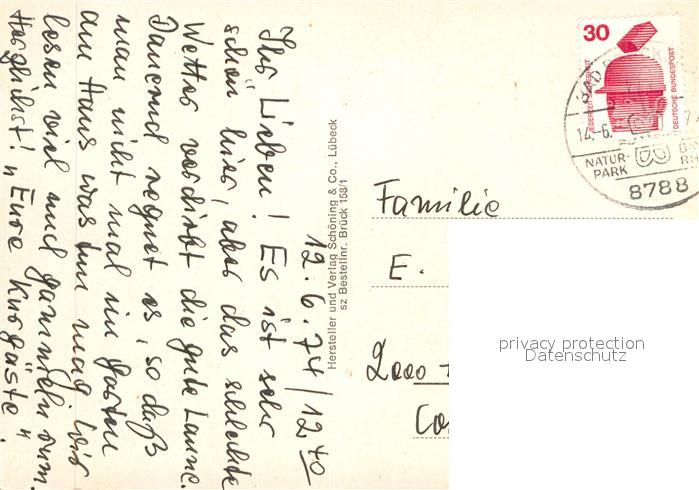 12.6.74/12.40
Ihr Lieben! Es ist sehr
schön hier, aber das schlechte
Wetter verdirbt die gute Laune.
Dauernd regnet es, so daß
man nicht mal im Garten
am Haus was tun mag. Wir
lesen viel und gammeln rum.
Herzlichst! "Eure Kurgäste".
Hersteller und Verlag Schöning & Co., Lübeck
sz Bestellnr. Brück 158/1
30
JEDERZEIT SICHERHEIT
DEUTSCHE BUNDESPOST
BAD
14.-6.
NATUR-
PARK
8788
Familie
E.
2000
privacy protection
Datenschutz